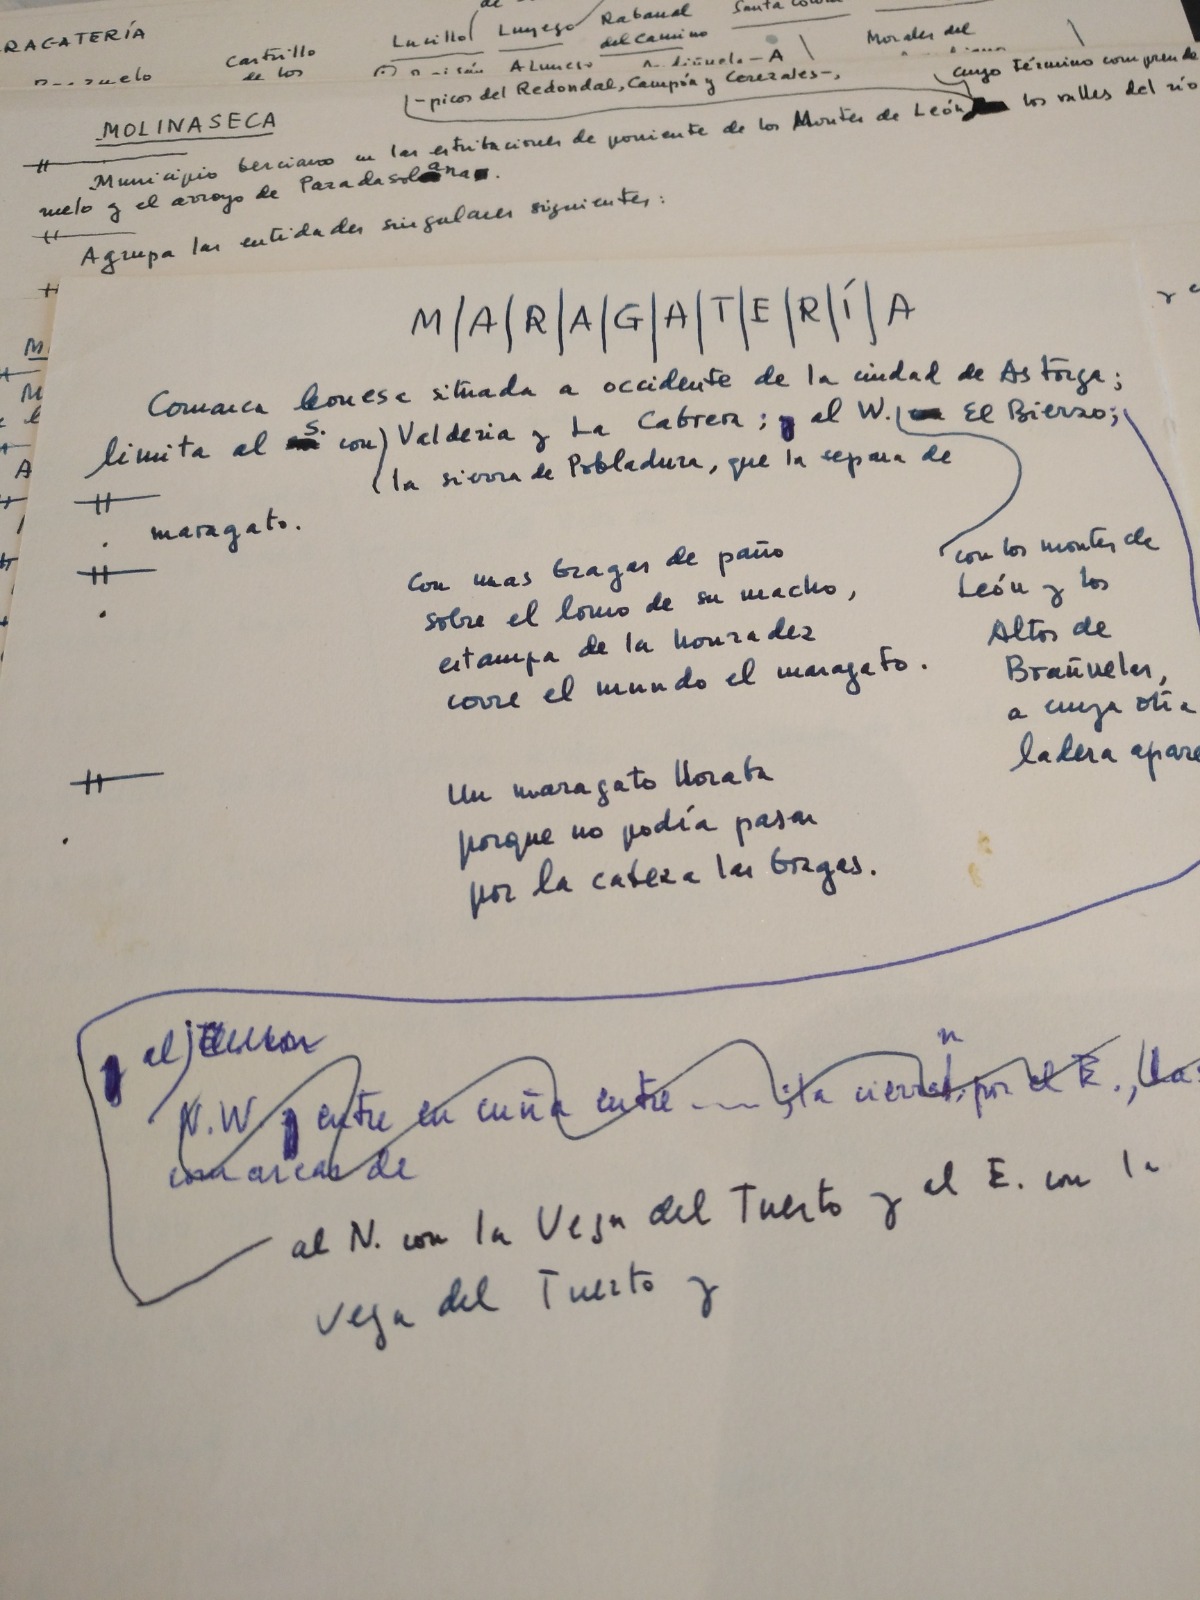 RAGATERÍA
Castrillo
de los
Lucillo
Luyego
Rabanal
del Camino
Santa Colom
Morales del
-picos del Redondal, Campón y Cerezales-,
cuyo término comprende
MOLINASECA
Municipio berciano en las estribaciones de poniente de los Montes de León los valles del río
ruelo y el arroyo de Paradasolana.
Agrupa las entidades singulares siguientes:
M/A/R/A/G/A/T/E/R/Í/A
Comarca leonesa situada a occidente de la ciudad de Astorga;
limita al S. con Valderia y La Cabrera; y al W. El Bierzo;
la sierra de Pobladura, que la separa de
maragato.
Con mas bragas de paño
sobre el lomo de su macho,
estampa de la honradez
corre el mundo el maragato.
con los montes de
León y los
Altos de
Brañuelas,
a cuya otra
ladera apare
Un maragato lloraba
porque no podía pasar
por la cabeza las bragas.
y al
N.W. y entre en cuña entre ---- ; la cierran, por el E., las
comarcas de
al N. con la Vega del Tuerto y al E. con la
Vega del Tuerto y